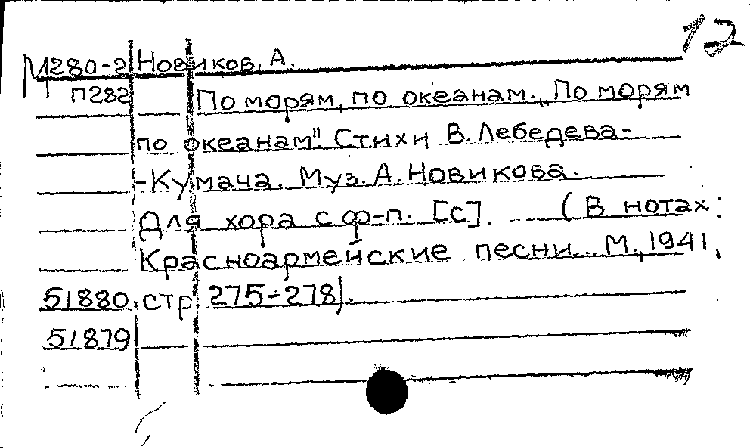 12
М280-2 Новиков, А.
П282 По морям, по океанам. „По морям
по океанам" Стихи В. Лебедева-
-Кумача. Муз. А. Новикова.
Для хора с ф-п. [с]. (В нотах:
Красноармейские песни. М., 1941,
51880 стр. 275-278).
51879